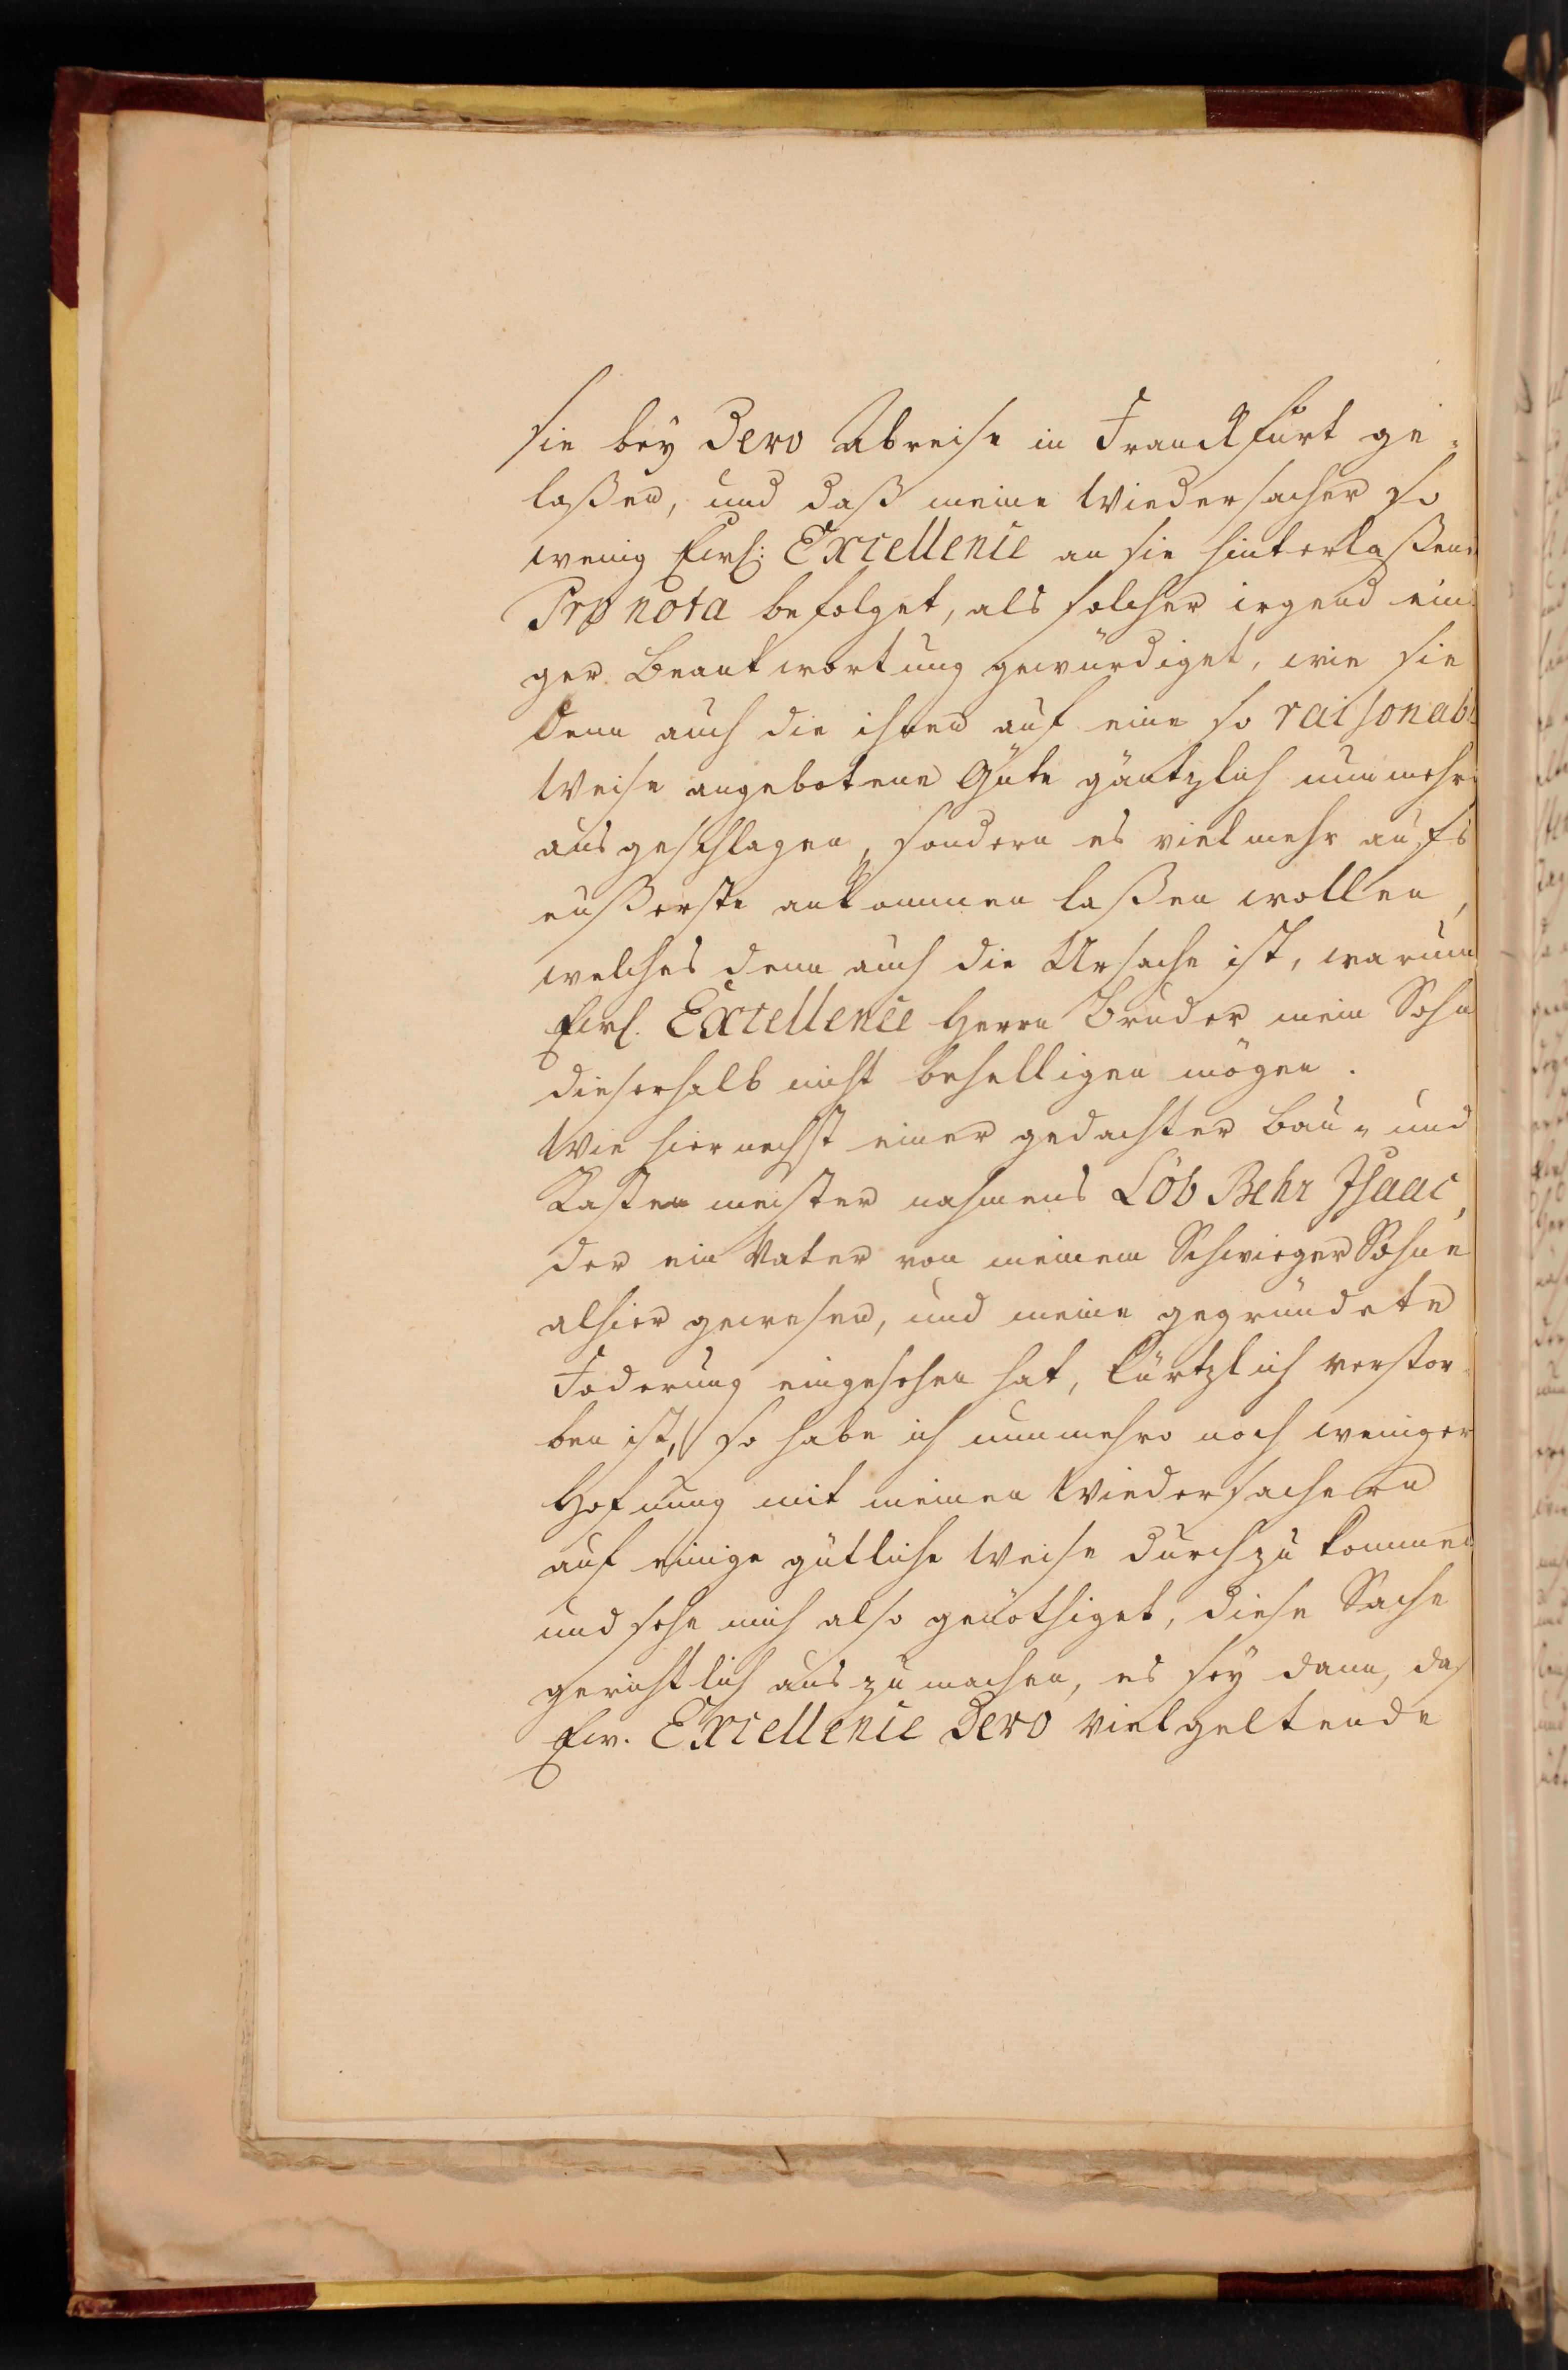 sie bey Dero Abreise in Franckfurt ge-
laßen, und daß meine Wiedersacher so
wenig Ewl: Excellence an sie hinterlaßene
Pro nota befolget, als solcher irgend eini
ger Beantwortung gewürdiget, wie sie
denn auch die ihnen auf eine so raisonabl
Weise angebotene Güte gäntzlich nunmehr
ausgeschlagen, sondern es vielmehr aufs
eußerste ankommen laßen wollen,
welches denn auch die Ursache ist, warum
Ewl. Excellence Herrn Bruder mein Sohn
dieserhalb nicht behelligen mögen.
Wie hiernechst einer gedachter Bau- und
Kastenmeister nahmens Löb Behr Isaac,
der ein Vater von meinem SchwiegerSohne
alhier gewesen, und meine gegründete
Foderung eingesehen hat, kürtzlich verstor
ben ist, so habe ich nunmehro noch weniger
Hofnung mit meinen Wiedersachern
auf einige gütliche Weise durchzukommen
und sehe mich also genöthiget, diese Sache
gerichtlich auszumachen, es sey dann, daß
Ew. Excellence Dero vielgeltende